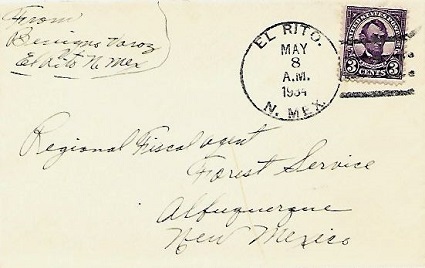 From
Benigno
El Rito N. Mex
EL RITO.
MAY
8
A.M.
1934
N. MEX.
UNITED STATES POSTAGE
3 CENTS 3
Regional Fiscal agent
Forest Service
Albuquerque
New Mexico